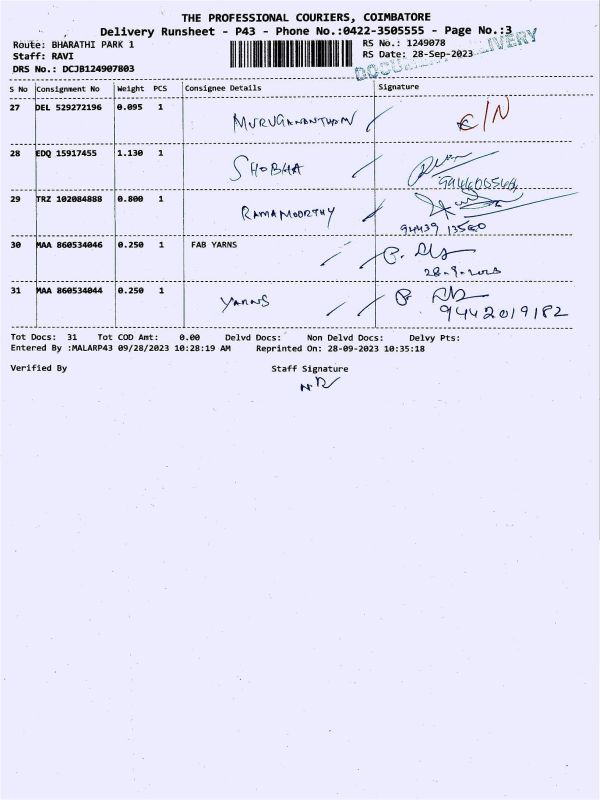 THE PROFESSIONAL COURIERS, COIMBATORE
Delivery Runsheet - P43 - Phone No.:0422-3505555 - Page No.:3
Route: BHARATHI PARK 1
RS No.: 1249078
Staff: RAVI
RS Date: 28-Sep-2023
DOCUMENT DELIVERY
DRS No.: DCJB124907803
S No Consignment No Weight PCS Consignee Details Signature
27 DEL 529272196 0.095 1
MURUGANANTHAM
28 EDQ 15917455 1.130 1
SHOBHA
29 TRZ 102084888 0.800 1
RAMAMOORTHY
94439 13560
30 MAA 860534046 0.250 1 FAB YARNS
28-9-2023
31 MAA 860534044 0.250 1
YARNS
9442019182
Tot Docs: 31 Tot COD Amt: 0.00 Delvd Docs: Non Delvd Docs: Delvy Pts:
Entered By :MALARP43 09/28/2023 10:28:19 AM Reprinted On: 28-09-2023 10:35:18
Verified By Staff Signature